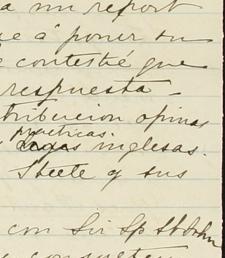 a mi report
e á poner su
contesté que
respuesta -
tribucion opinas
practicas.
inglesas.
Steele y sus
con Sir Sp StJohn